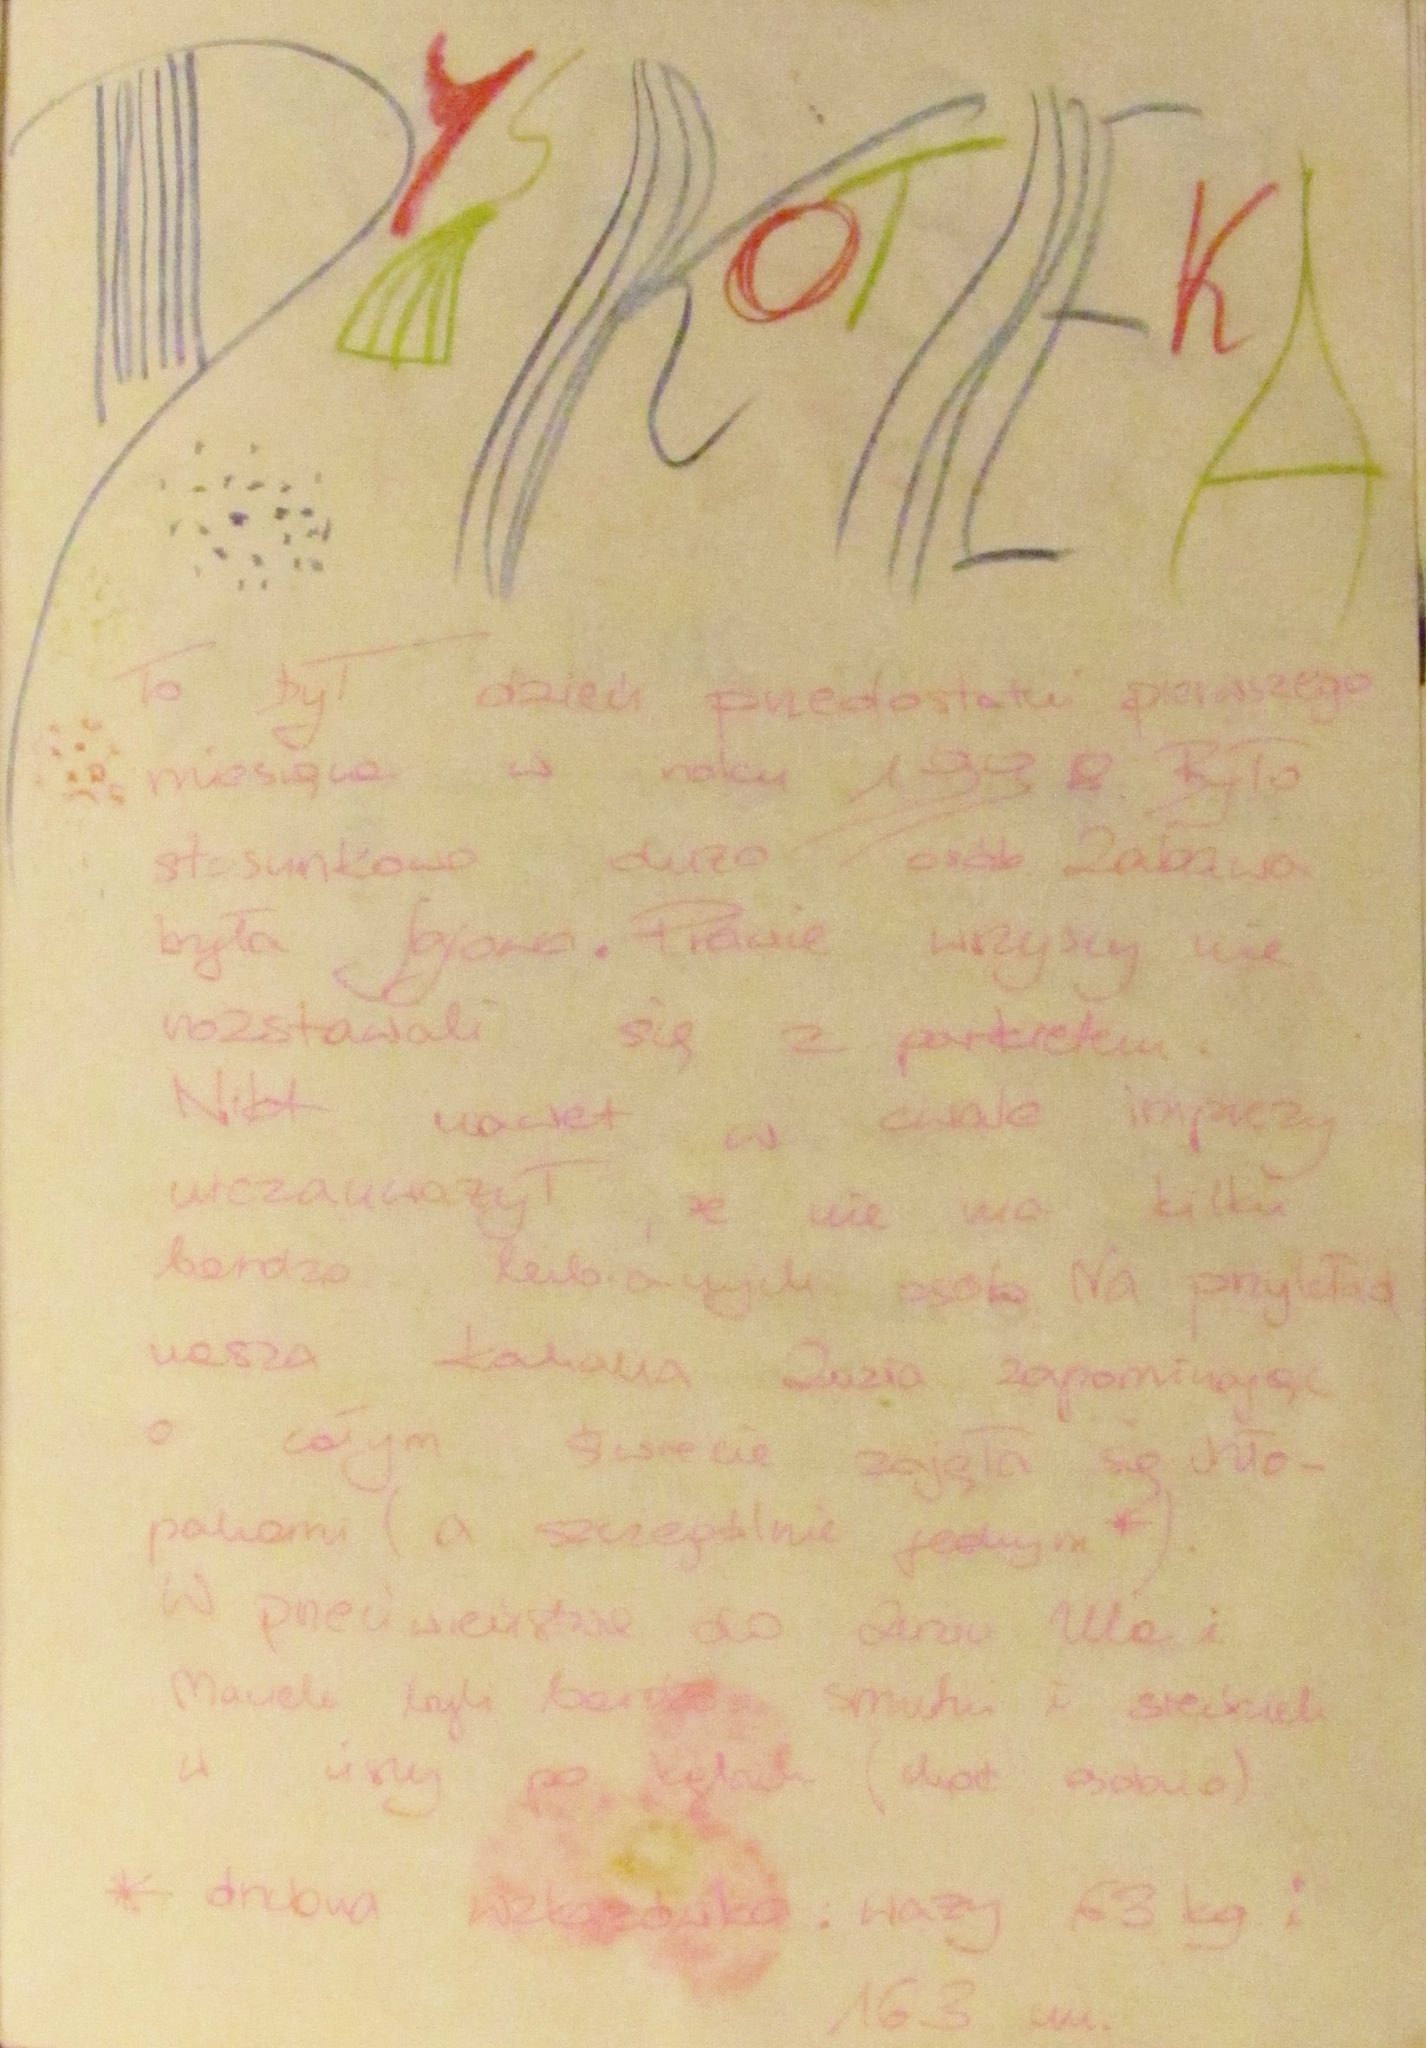 DYSKOTEKA
To był dzień przedostatni pierwszego
miesiąca w roku 1998. Było
stosunkowo dużo osób Zabawa
była fajowa. Prawie wszyscy nie
rozstawali się z parkietem.
Nikt nawet w cwale imprezy
niezauważył, że nie ma kilku
bardzo lubianych osób. Na przykład
nasza kochana Zuzia zapominając
o całym świecie zajęła się chło-
pakami (a szczególnie jednym*).
W przeciwieństwie do Zuzi Ula i
Maciek byli bardzo smutni i siedzieli
w ciszy po kątach (choć osobno)
* drobna wskazówka: waży 63 kg i
163 cm.